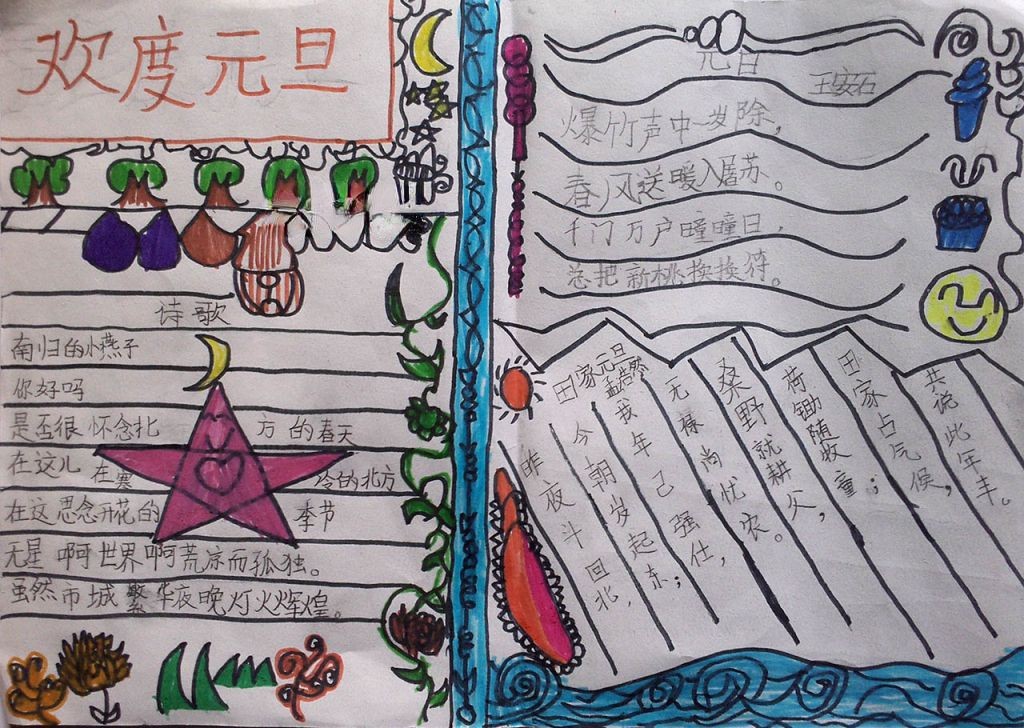 欢度元旦
诗歌
南归的小燕子
你好吗
是否很怀念北方的春天
在这儿在寒冷的北方
在这思念开花的季节
无星啊世界啊荒凉而孤独。
虽然市城繁华夜晚灯火辉煌。
元旦
王安石
爆竹声中一岁除,
春风送暖入屠苏。
千门万户曈曈日,
总把新桃换换符。
田家元旦
孟浩然
昨夜斗回北,
今朝岁起东;
我年已强仕,
无禄尚忧农。
桑野就耕父,
荷锄随牧童;
田家占气候,
共说此年丰。